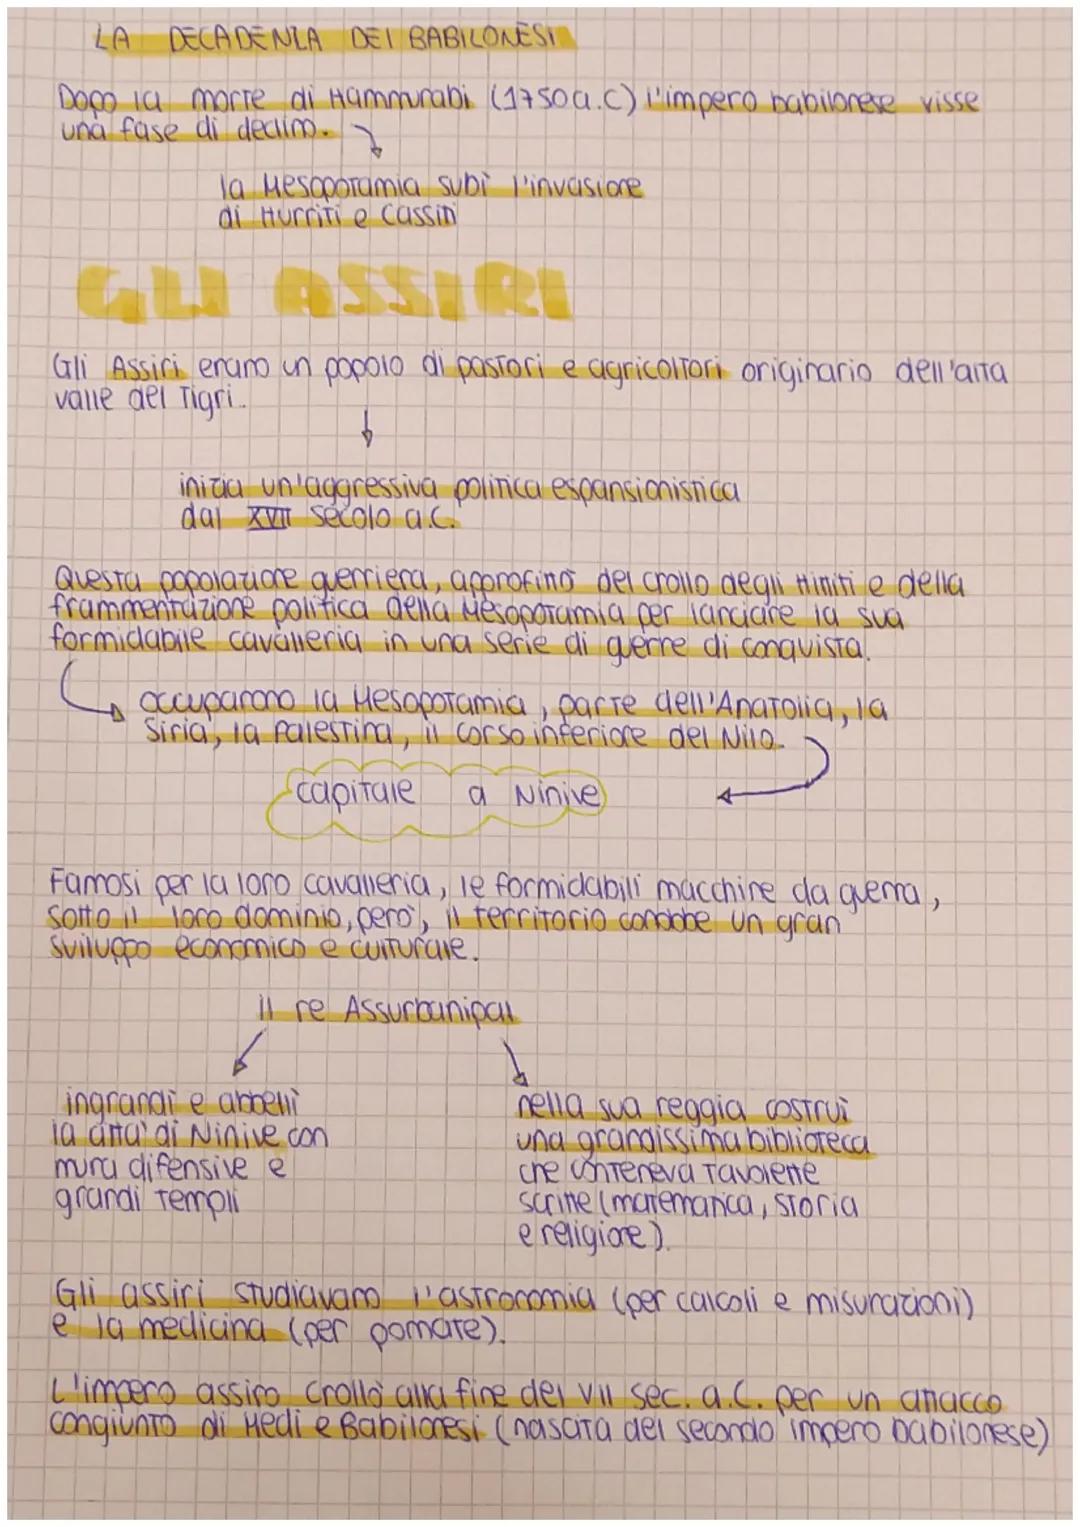 LA DECADENZA DEI BABILONESI
Dopo la morte di Hammurabi (1750 a.C) l'impero babilonese visse
una fase di declino.
la Mesopotamia subì l'invasione
di Hurriti e Cassiti
GLI ASSIRI
Gli Assiri erano un popolo di pastori e agricoltori originario dell'alta
valle del Tigri.
inizia un'aggressiva politica espansionistica
dal XVII secolo a.C.
Questa popolazione guerriera, approfittò del crollo degli Hititi e della
frammentazione politica della Mesopotamia per lanciare la sua
formidabile cavalleria in una serie di guerre di conquista.
occuparono la Mesopotamia, parte dell'Anatolia, la
Siria, la Palestina, il corso inferiore del Nilo.
capitale a Ninive
Famosi per la loro cavalleria, le formidabili macchine da guerra,
sotto il loro dominio, però, il territorio conobbe un gran
sviluppo economico e culturale.
il re Assurbanipal
ingrandì e abbellì
la città di Ninive con
mura difensive e
grandi templi
nella sua reggia costruì
una grandissima biblioteca
che conteneva tavolette
scritte (matematica, storia
e religione).
Gli assiri studiavano l'astronomia (per calcoli e misurazioni)
e la medicina (per pomate).
L'impero assiro crollò alla fine del VII sec. a.C. per un attacco
congiunto di Medi e Babilonesi (nascita del secondo impero babilonese)